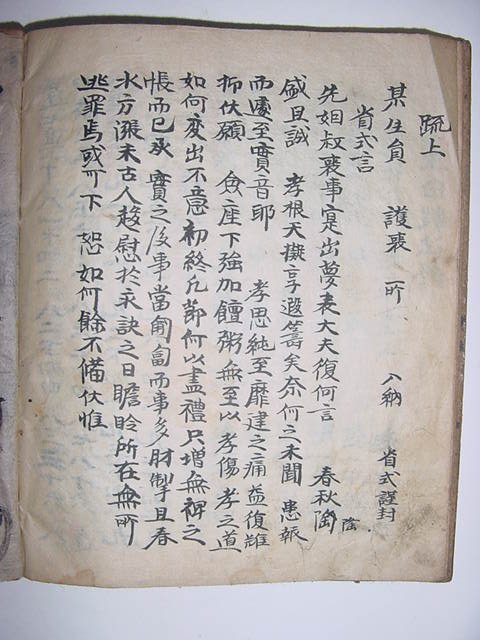 疏上
某生員 護喪 所 入納 省式謹封
省式言
先妣叔喪事寔出夢表大夫復何言 春秋隆
陰
盛且誠 孝根天擬享遐筭矣奈何之未聞 患報
而遽至實音耶 孝思純至靡逮之痛益復難
抑伏願 僉座下強加饘粥無至以孝傷孝之道
如何变出不意初終凡節何以盡禮只增無祢之
悵而已承 實之後事當匍匐而事多財掣且春
氷方漲末古人趍慰於永訣之日瞻聆所在無所
逃罪焉或可下 恕如何餘不備伏惟